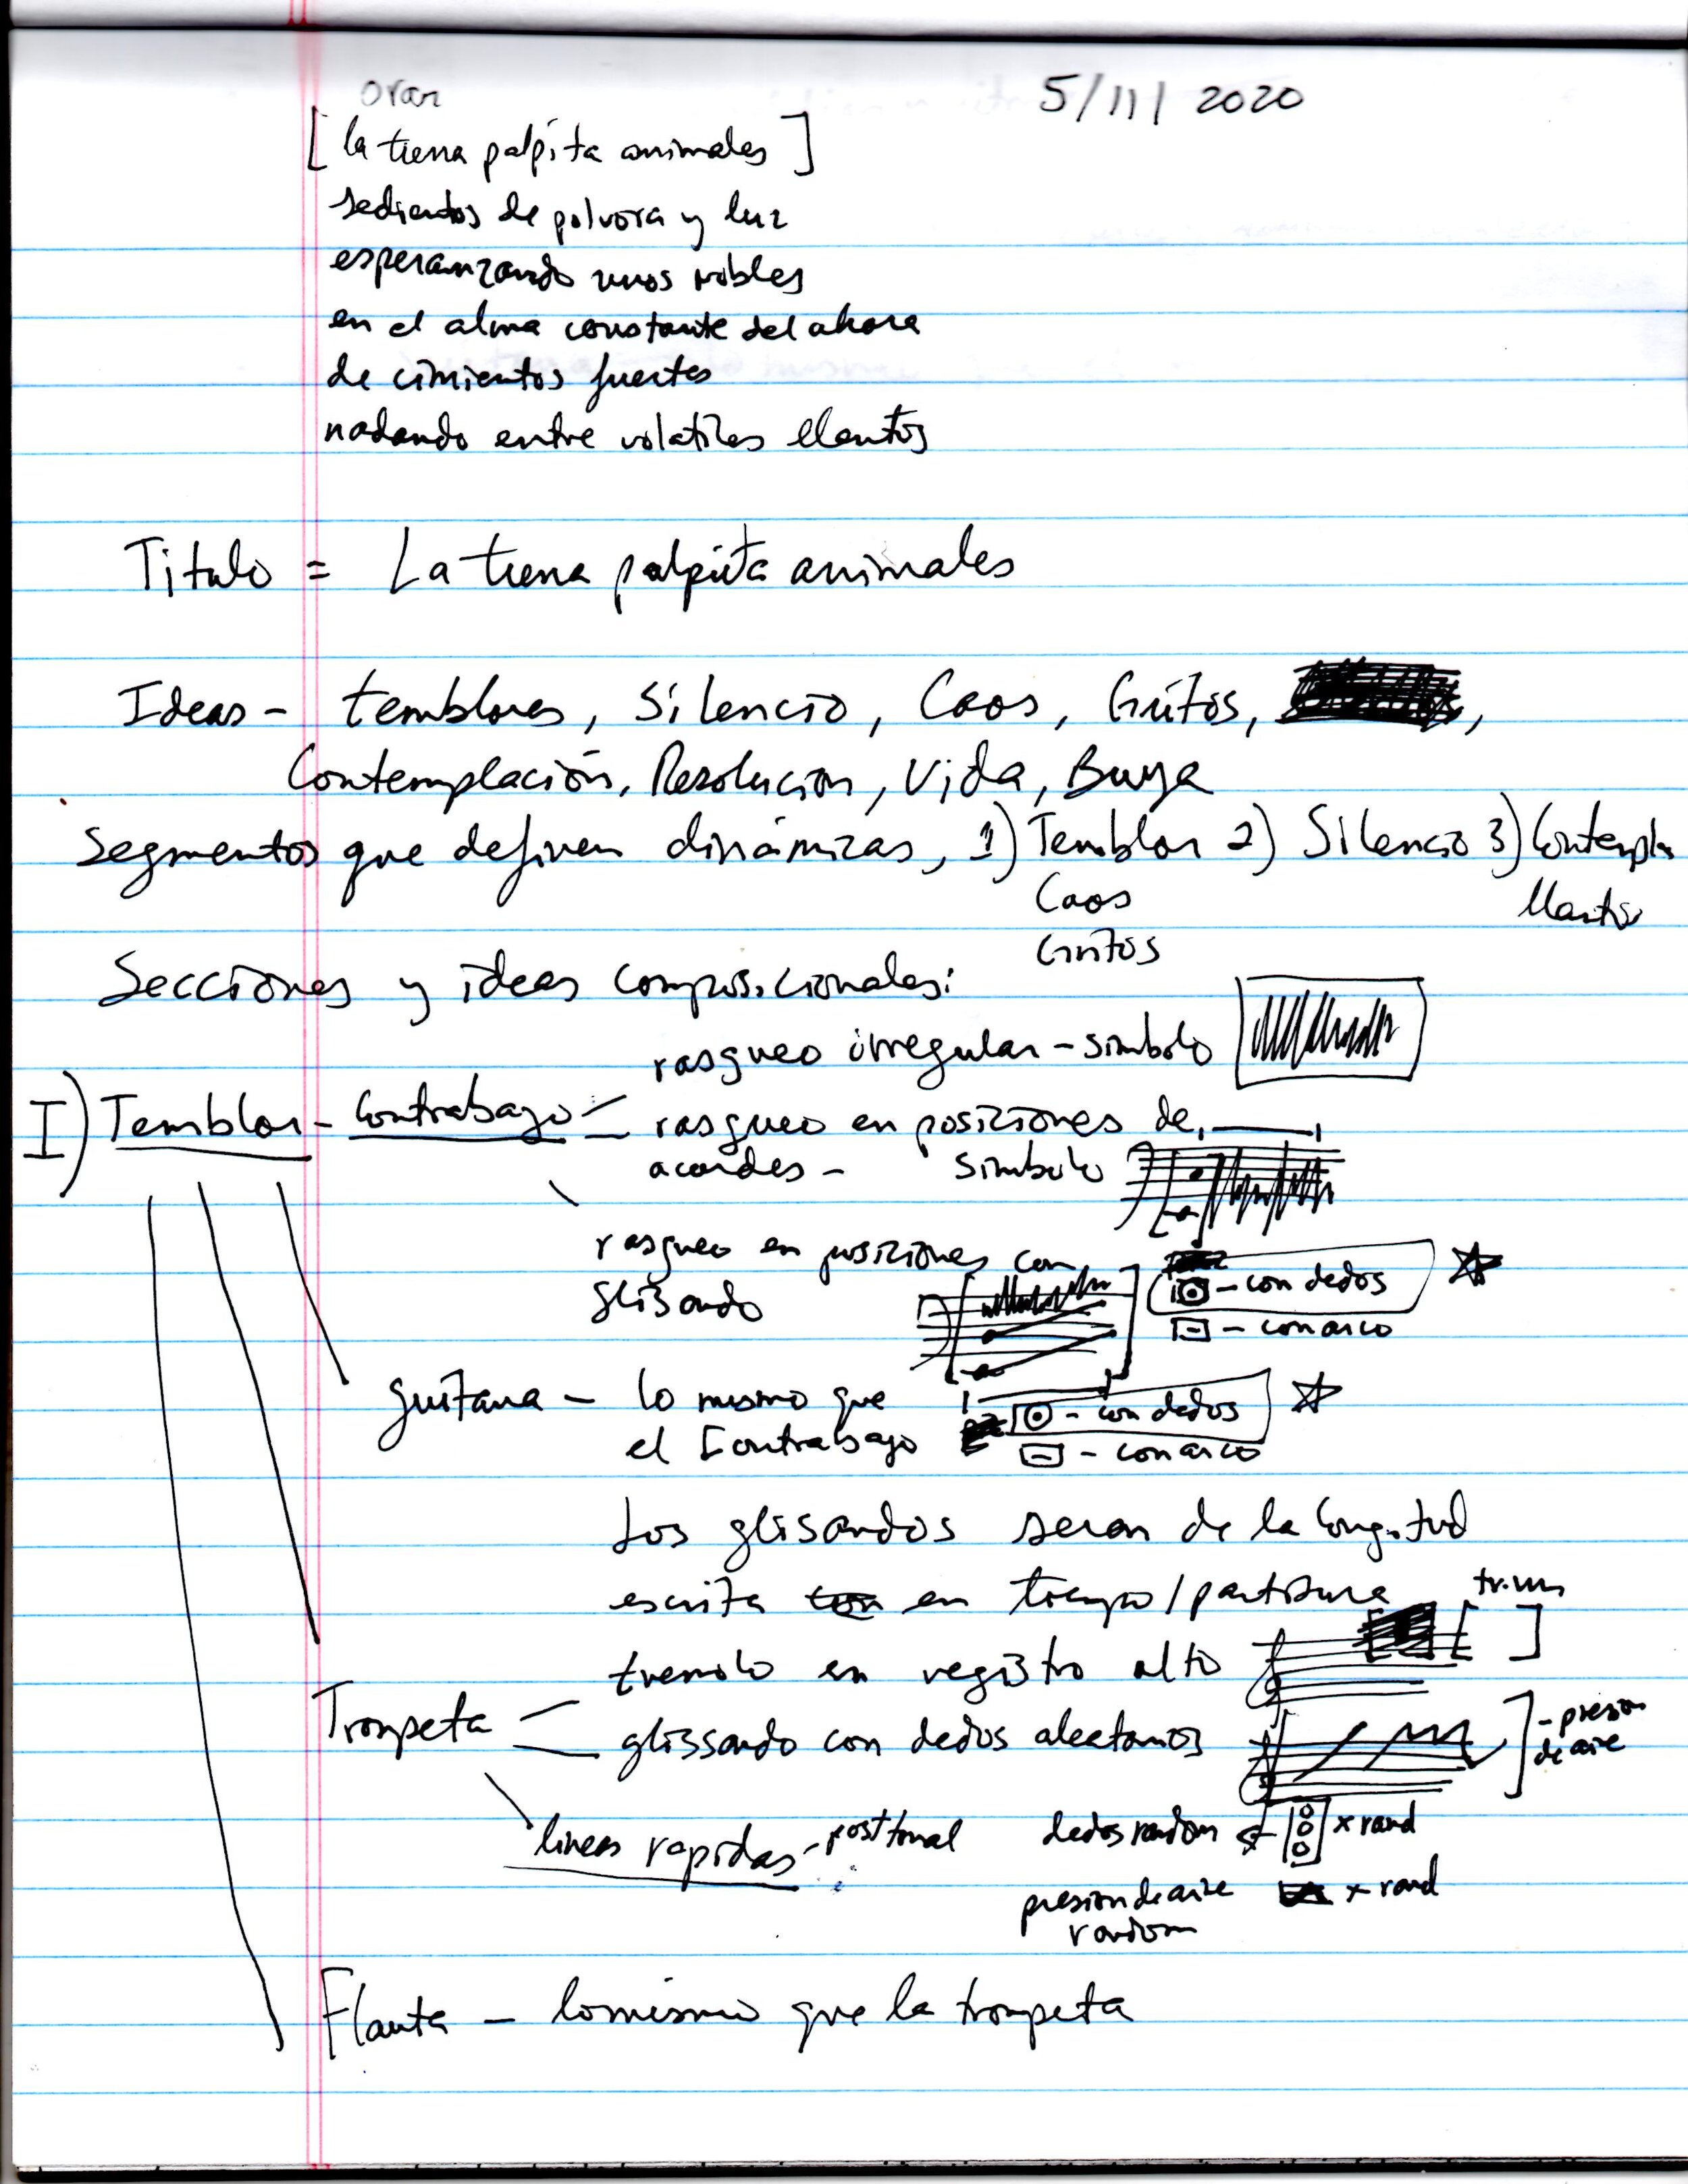 orar
5/11/2020
[la tierra palpita animales]
sedientos de polvora y luz
esperanzando unos robles
en el alma constante del ahora
de cimientos fuertes
nadando entre volatiles
Titulo = La tierra palpita animales
Ideas - temblores, Silencio, Caos, Gritos,
Contemplación, Resolucion, Vida, Buya
Segmentos que definen dinámicas, 1) Temblor 2) Silencio 3) Contempla
Caos
Llanto
Gritos
Secciones y ideas composicionales:
rasgueo irregular - simbolo
I) Temblor - Contrabajo - rasgueo en posiciones de
acordes - simbolo
rasgueo en posiciones con
glisando
- con dedos
- con arco
guitarra - lo mismo que
el Contrabajo
- con dedos
- con arco
Los glisandos seran de la longitud
escrita en tiempo/partitura
tremolo en registro alto
Trompeta
glissando con dedos aleatorios
- presion
de aire
lineas rapidas - posttonal
dedos random x rand
presion de aire
random
x rand
Flauta - lo mismo que la trompeta